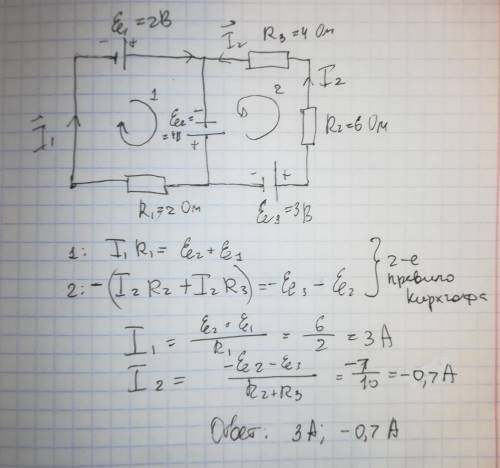 ℰ₁ = 2В
- +
I⃗₂ R₃ = 4 Ом
I₂
1 2
I⃗₁
ℰ₂ = -
= 4В
+
R₂ = 6 Ом
- +
R₁ = 2 Ом
ℰ₃ = 3В
1: I₁ R₁ = ℰ₂ + ℰ₁
2: -(I₂ R₂ + I₂ R₃) = -ℰ₃ - ℰ₂
2-е
правило
Кирхгофа
I₁ = (ℰ₂ + ℰ₁)/R₁ = 6/2 = 3 А
I₂ = (-ℰ₂ - ℰ₃)/(R₂ + R₃) = -7/10 = -0,7 А
Ответ: 3 А; -0,7 А